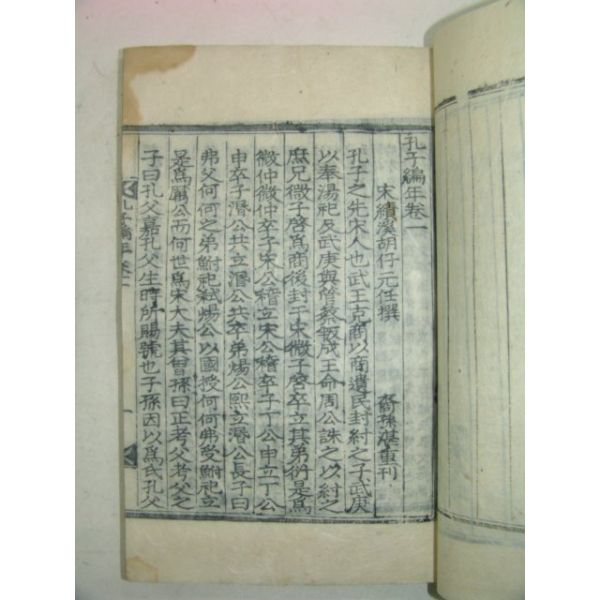 孔子編年卷一
宋績溪胡仔元任撰 裔孫 重刊
孔子之先宋人也武王克商以商遺民封紂之子武庚
以奉湯祀及武庚與管蔡叛成王命周公誅之以紂之
庶兄微子啓爲商後封于宋微子啓卒立其弟衍是爲
微仲微仲卒子宋公稽立宋公稽卒子丁公申立丁公
申卒子湣公共立湣公共卒弟煬公熙立湣公長子曰
弗父何何之弟鮒祀弑煬公以國授何何弗受鮒祀立
是爲厲公而何世爲宋大夫其曾孫曰正考父考父之
子曰孔父嘉孔父生時所賜號也子孫因以爲氏孔父
孔子編年卷一